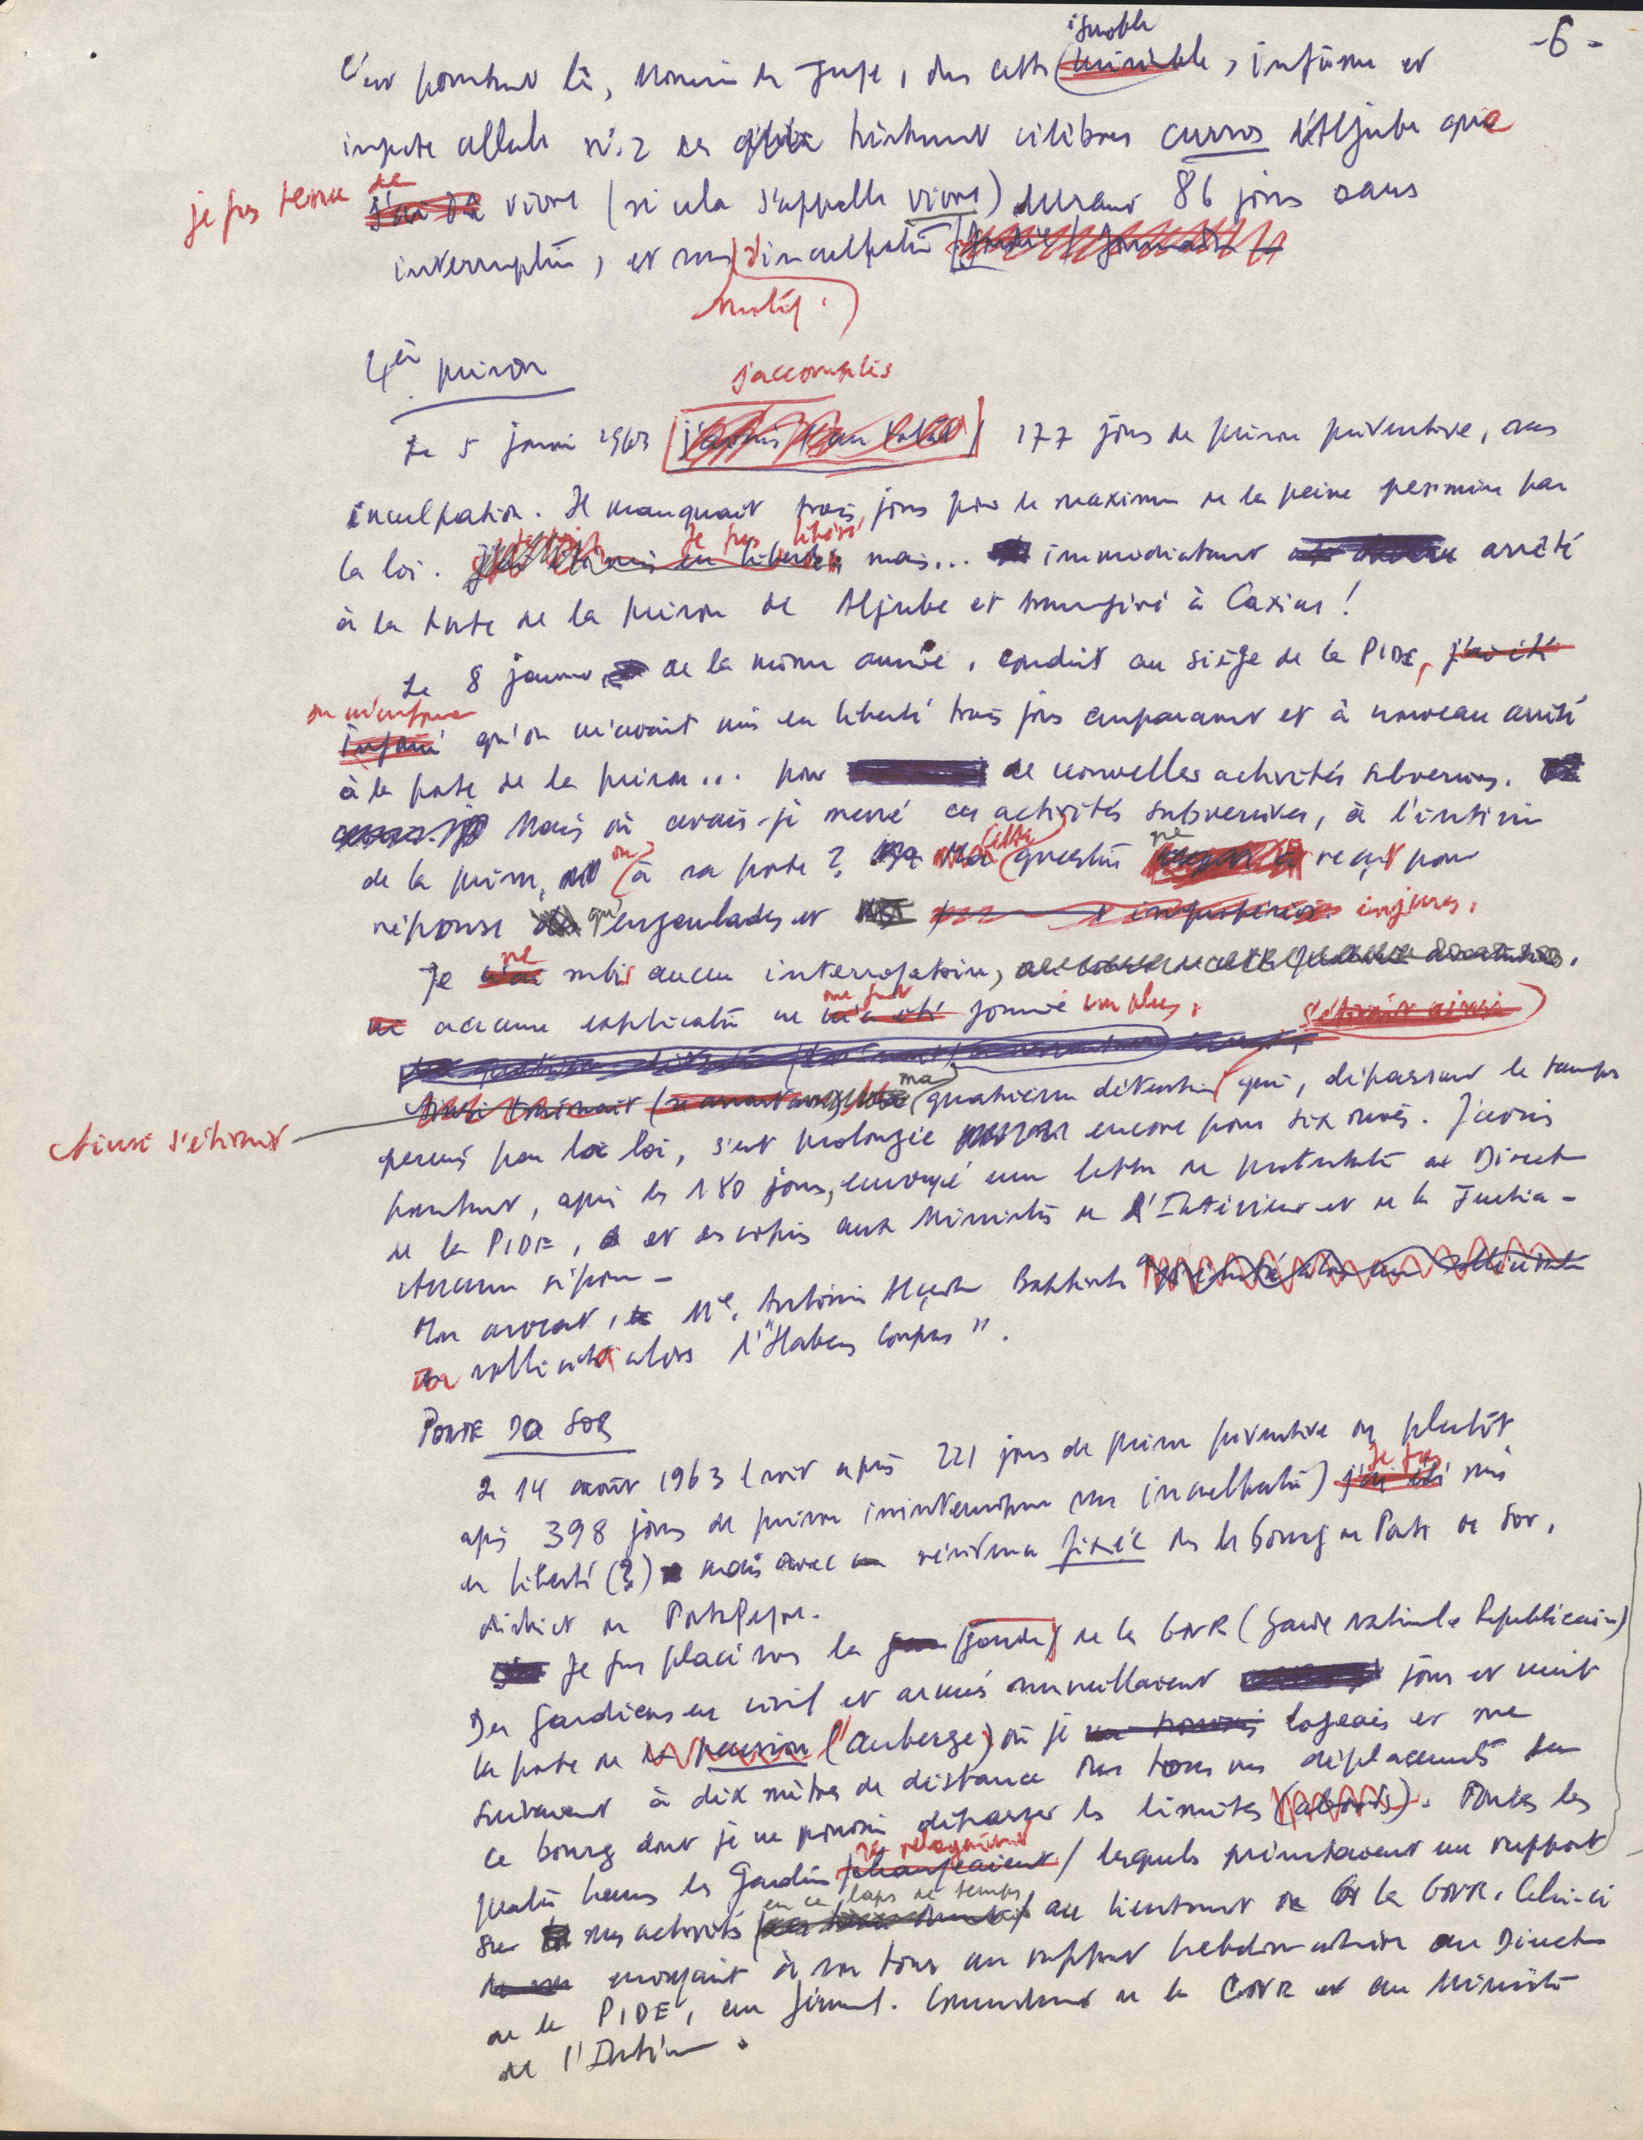 -6-
ignoble
C'est pourtant là, Monsieur le Juge, dans cette , infâme et
infecte cellule nº. 2 des tristement célèbres curros d'Aljube que
je fus tenu de vivre (si cela s'appelle vivre) durant 86 jours sans
interruption, et sans d'inculpation
motif
4è prison
j'accomplis
Le 5 janvier 1963 177 jours de prison préventive, sans
inculpation. Il manquait trois jours pour le maximum de la peine permise par
la loi. Je fus libéré mais... immédiatement arrêté
à la porte de la prison de Aljube et transféré à Caxias!
Le 8 janvier de la même année, conduit au siège de la PIDE, j'ai été
on m'informe
informé qu'on m'avait mis en liberté trois jours auparavant et à nouveau arrêté
à la porte de la prison... pour de nouvelles activités subversives.
Mais où avais-je mené ces activités subversives, à l'intérieur
de la prison, ou à sa porte? cette question ne reçut pour
réponse qu'engueulades et injures.
Je ne subis aucun interrogatoire,
aucune explication ne me fut donnée non plus.
s'étirait ainsi
Ainsi s'étirait
ma quatrième détention qui, dépassant le temps
permis par la loi, s'est prolongée encore pour six mois. J'avais
pourtant, après les 180 jours, envoyé une lettre de protestation au Directeur
de la PIDE, et des copies aux Ministres de l'Intérieur et de la Justice -
Aucune réponse -
Mon avocat, Me. António Baptista
sollicita alors l'"Habeas Corpus".
PONTE DO SOR
Le 14 août 1963 (soit après 221 jours de prison préventive ou plutôt
après 398 jours de prison ininterrompue sans inculpation) je fus mis
en liberté (?) mais avec résidence fixée dans le bourg de Ponte de Sor,
district de Portalegre.
Je fus placé sous la garde de la GNR (Garde Nationale Républicaine)
Des gardiens en civil et armés surveillaient jour et nuit
la porte de pension (l'auberge) où je logeais et me
suivaient à dix mètres de distance dans tous mes déplacements dans
ce bourg dont je ne pouvais dépasser les limites (abords). Toutes les
quatre heures les gardiens se relayaient lesquels présentaient un rapport
sur mes activités en ce laps de temps au lieutenant de la GNR. Celui-ci
envoyait à son tour un rapport hebdomadaire au Directeur
de la PIDE, au général Commandant de la GNR et au Ministre
de l'Intérieur.